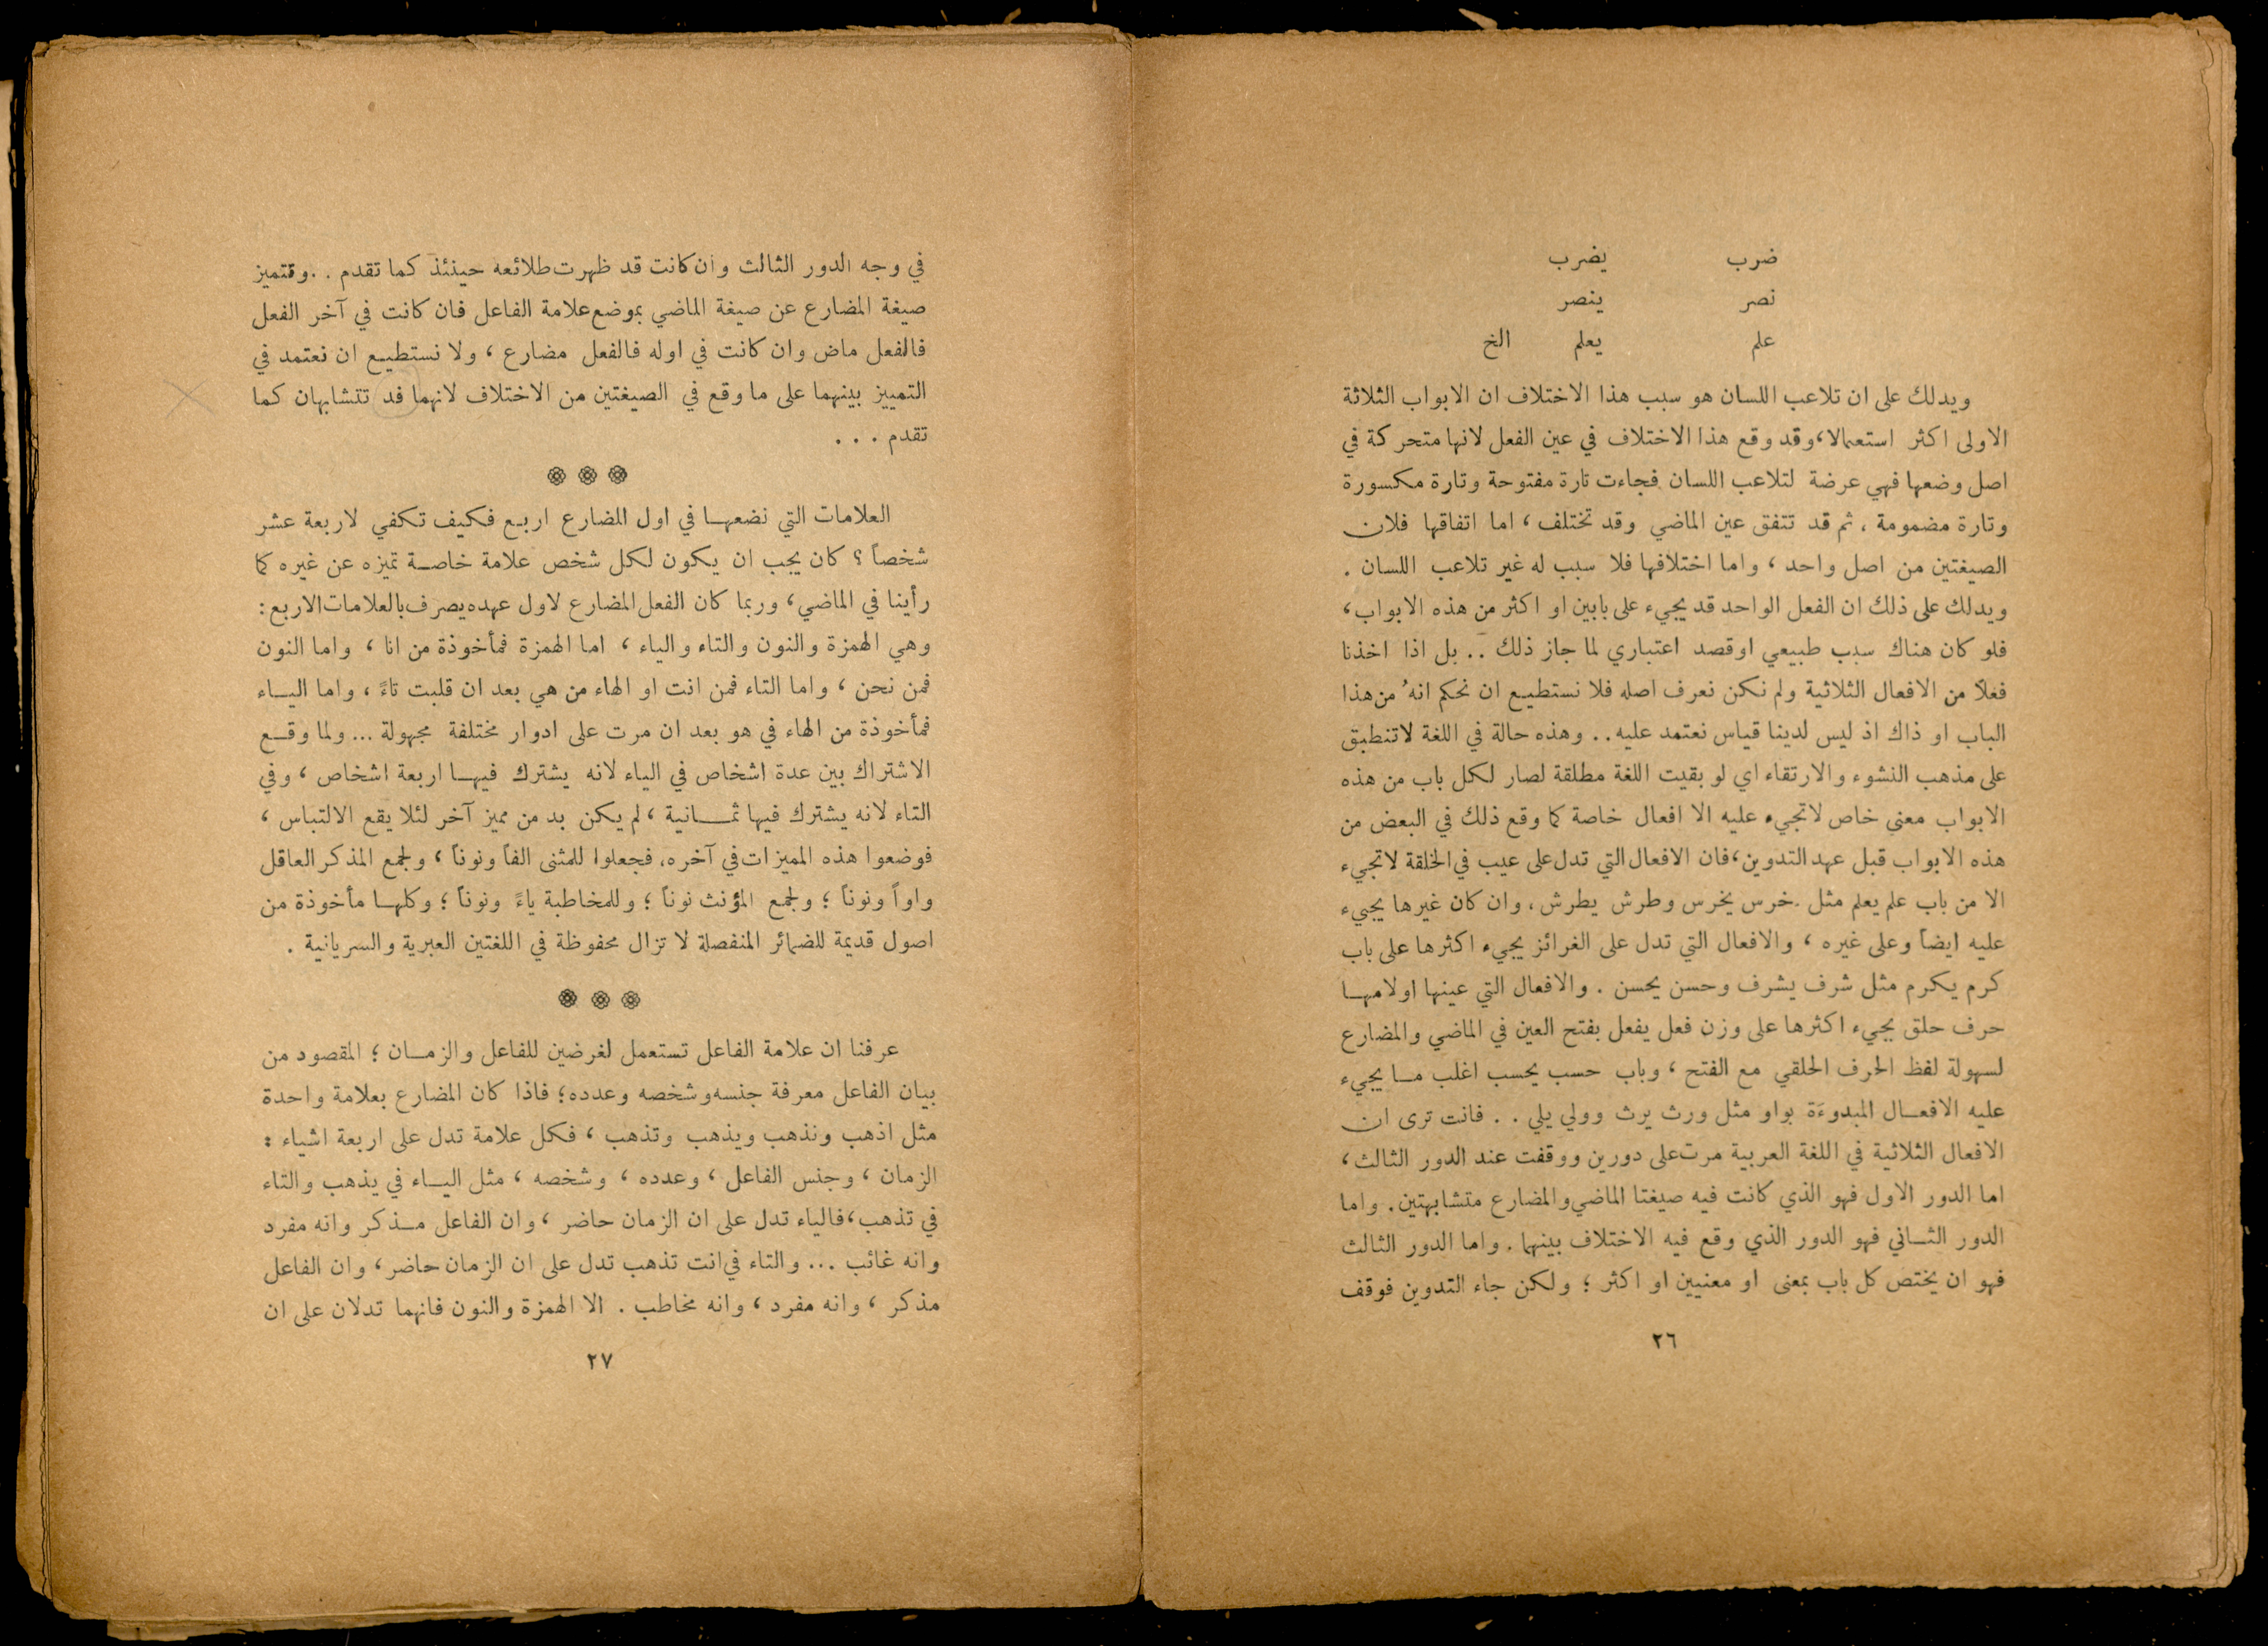 ضرب يضرب
نصر ينصر
علم يعلم الخ
ويدلك على ان تلاعب اللسان هو سبب هذا الاختلاف ان الابواب الثلاثة
الاولى اكثر استعمالا، وقد وقع هذا الاختلاف في عين الفعل لانها متحركة في
اصل وضعها فهي عرضة لتلاعب اللسان فجاءت تارة مفتوحة وتارة مكسورة
وتارة مضمومة ، ثم قد تتفق عين الماضي وقد تختلف ، اما اتفاقها فلان
الصيغتين من اصل واحد ، واما اختلافها فلا سبب له غير تلاعب اللسان .
ويدلك على ذلك ان الفعل الواحد قد يجيء على بابين او اكثر من هذه الابواب ،
فلو كان هناك سبب طبيعي او قصد اعتباري لما جاز ذلك .. بل اذا اخذنا
فعلاً من الافعال الثلاثية ولم نكن نعرف اصله فلا نستطيع ان نحكم انهُ من هذا
الباب او ذاك اذ ليس لدينا قياس نعتمد عليه .. وهذه حالة في اللغة لا تنطبق
على مذهب النشوء والارتقاء اي لو بقيت اللغة مطلقة لصار لكل باب من هذه
الابواب معنى خاص لا تجيء عليه الا افعال خاصة كما وقع ذلك في البعض من
هذه الابواب قبل عهد التدوين ، فان الافعال التي تدل على عيب في الخلقة لا تجيء
الا من باب علم يعلم مثل خرس يخرس وطرش يطرش ، وان كان غيرها يجيء
عليه ايضاً وعلى غيره ، والافعال التي تدل على الغرائز يجيء اكثرها على باب
كرم يكرم مثل شرف يشرف وحسن يحسن . والافعال التي عينها او لامها
حرف حلق يجيء اكثرها على وزن فعل يفعل بفتح العين في الماضي والمضارع
لسهولة لفظ الحرف الحلقي مع الفتح ، وباب حسب يحسب اغلب ما يجيء
عليه الافعال المبدوءَة بواو مثل ورث يرث وولي يلي . . فانت ترى ان
الافعال الثلاثية في اللغة العربية مرت على دورين ووقفت عند الدور الثالث ،
اما الدور الاول فهو الذي كانت فيه صيغتا الماضي والمضارع متشابهتين . واما
الدور الثاني فهو الدور الذي وقع فيه الاختلاف بينهما . واما الدور الثالث
فهو ان يختص كل باب بمعنى او معنيين او اكثر ؛ ولكن جاء التدوين فوقف
٢٦
في وجه الدور الثالث وان كانت قد ظهرت طلائعه حينئذ كما تقدم . . وتتميز
صيغة المضارع عن صيغة الماضي بموضع علامة الفاعل فان كانت في آخر الفعل
فالفعل ماض وان كانت في اوله فالفعل مضارع ، ولا نستطيع ان نعتمد في
التمييز بينهما على ما وقع في الصيغتين من الاختلاف لانهما قد تتشابهان كما
تقدم . . .
العلامات التي نضعها في اول المضارع اربع فكيف تكفي لاربعة عشر
شخصاً ؟ كان يجب ان يكون لكل شخص علامة خاصة تميزه عن غيره كما
رأينا في الماضي ، وربما كان الفعل المضارع لاول عهده يصرف بالعلامات الاربع :
وهي الهمزة والنون والتاء والياء ، اما الهمزة فمأخوذة من انا ، واما النون
فمن نحن ، واما التاء فمن انت او الهاء من هي بعد ان قلبت تاءً ، واما الياء
فمأخوذة من الهاء في هو بعد ان مرت على ادوار مختلفة مجهولة ... ولما وقع
الاشتراك بين عدة اشخاص في الياء لانه يشترك فيها اربعة اشخاص ، وفي
التاء لانه يشترك فيها ثمانية ، لم يكن بد من مميز آخر لئلا يقع الالتباس ،
فوضعوا هذه المميزات في آخره ، فجعلوا للمثنى الفاً ونوناً ، ولجمع المذكر العاقل
واواً ونوناً ؛ ولجمع المؤنث نوناً ؛ وللمخاطبة ياءً ونوناً ؛ وكلها مأخوذة من
اصول قديمة للضمائر المنفصلة لا تزال محفوظة في اللغتين العبرية والسريانية .
عرفنا ان علامة الفاعل تستعمل لغرضين للفاعل والزمان ؛ المقصود من
بيان الفاعل معرفة جنسه وشخصه وعدده ؛ فاذا كان المضارع بعلامة واحدة
مثل اذهب ونذهب ويذهب وتذهب ، فكل علامة تدل على اربعة اشياء :
الزمان ، وجنس الفاعل ، وعدده ، وشخصه ، مثل الياء في يذهب والتاء
في تذهب ، فالياء تدل على ان الزمان حاضر ، وان الفاعل مذكر وانه مفرد
وانه غائب ... والتاء في انت تذهب تدل على ان الزمان حاضر ، وان الفاعل
مذكر ، وانه مفرد ، وانه مخاطب . الا الهمزة والنون فانهما تدلان على ان
٢٧